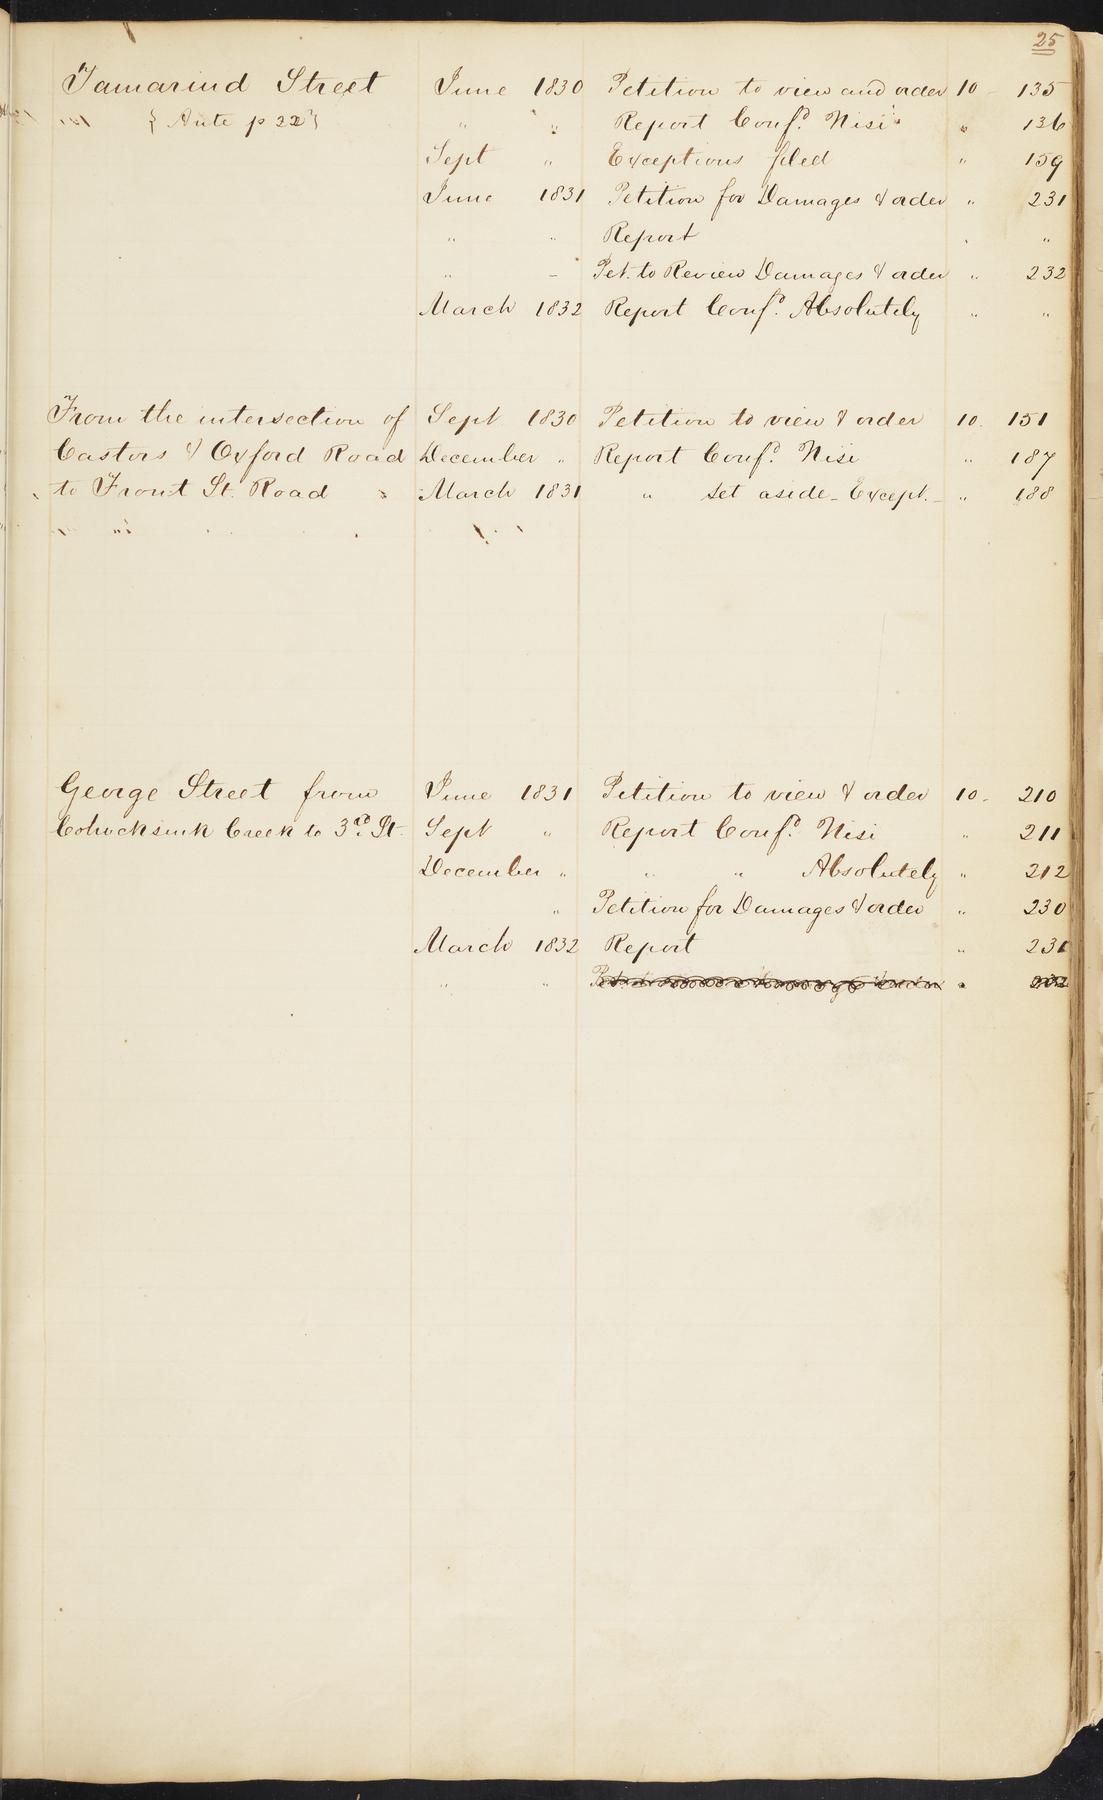 25
Tamarind Street June 1830 Petition to view and order 10 135
{Ante p 22} " " Report Confd. Nisi " 136
Sept " Exceptions filed " 159
June 1831 Petition for Damages & order " 231
" " Report " "
" - Pet. to Review Damages & order " 232
March 1832 Report Confd. Absolutely " "
From the intersection of Sept 1830 Petition to view & order 10. 151
Castors & Oxford Road December " Report Confd. Nisi " 187
to Front St. Road March 1831 " set aside - Except. - " 188
George Street from June 1831 Petition to view & order 10. 210
Cohocksink Creek to 3rd. St. Sept " Report Confd. Nisi " 211
December " " " Absolutely " 212
" Petition for Damages & order " 230
March 1832 Report " 231
" " "